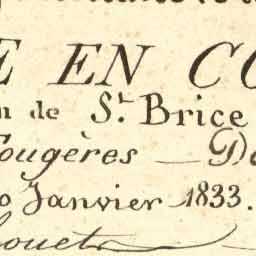 E EN CO
n de St. Brice
Fougères — De
0 Janvier 1833.